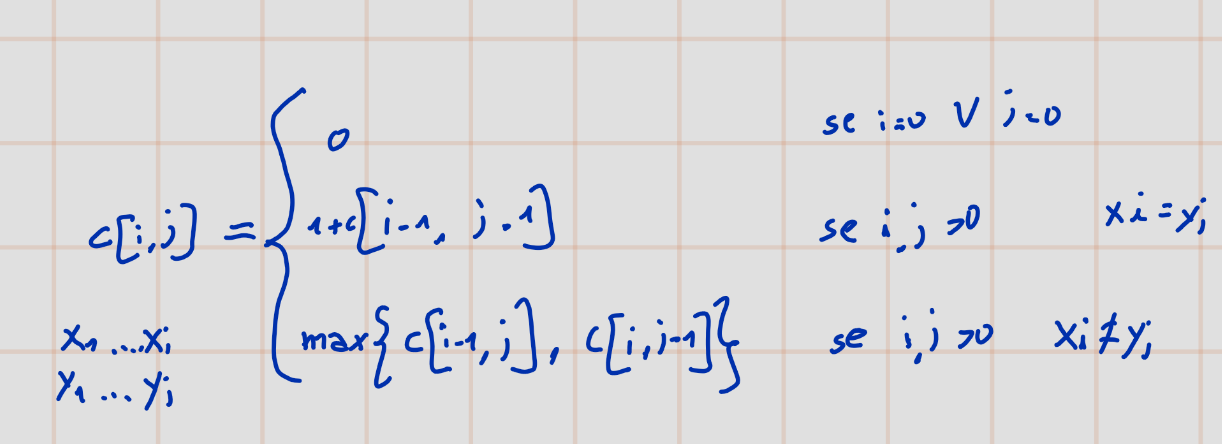 0 se i=0 ∨ j=0
c[i,j] = { 1+c[i-1, j-1] se i,j >0 xi=yj
max{c[i-1,j], c[i,j-1]} se i,j >0 xi≠yj
x1 ... xi
y1 ... yj